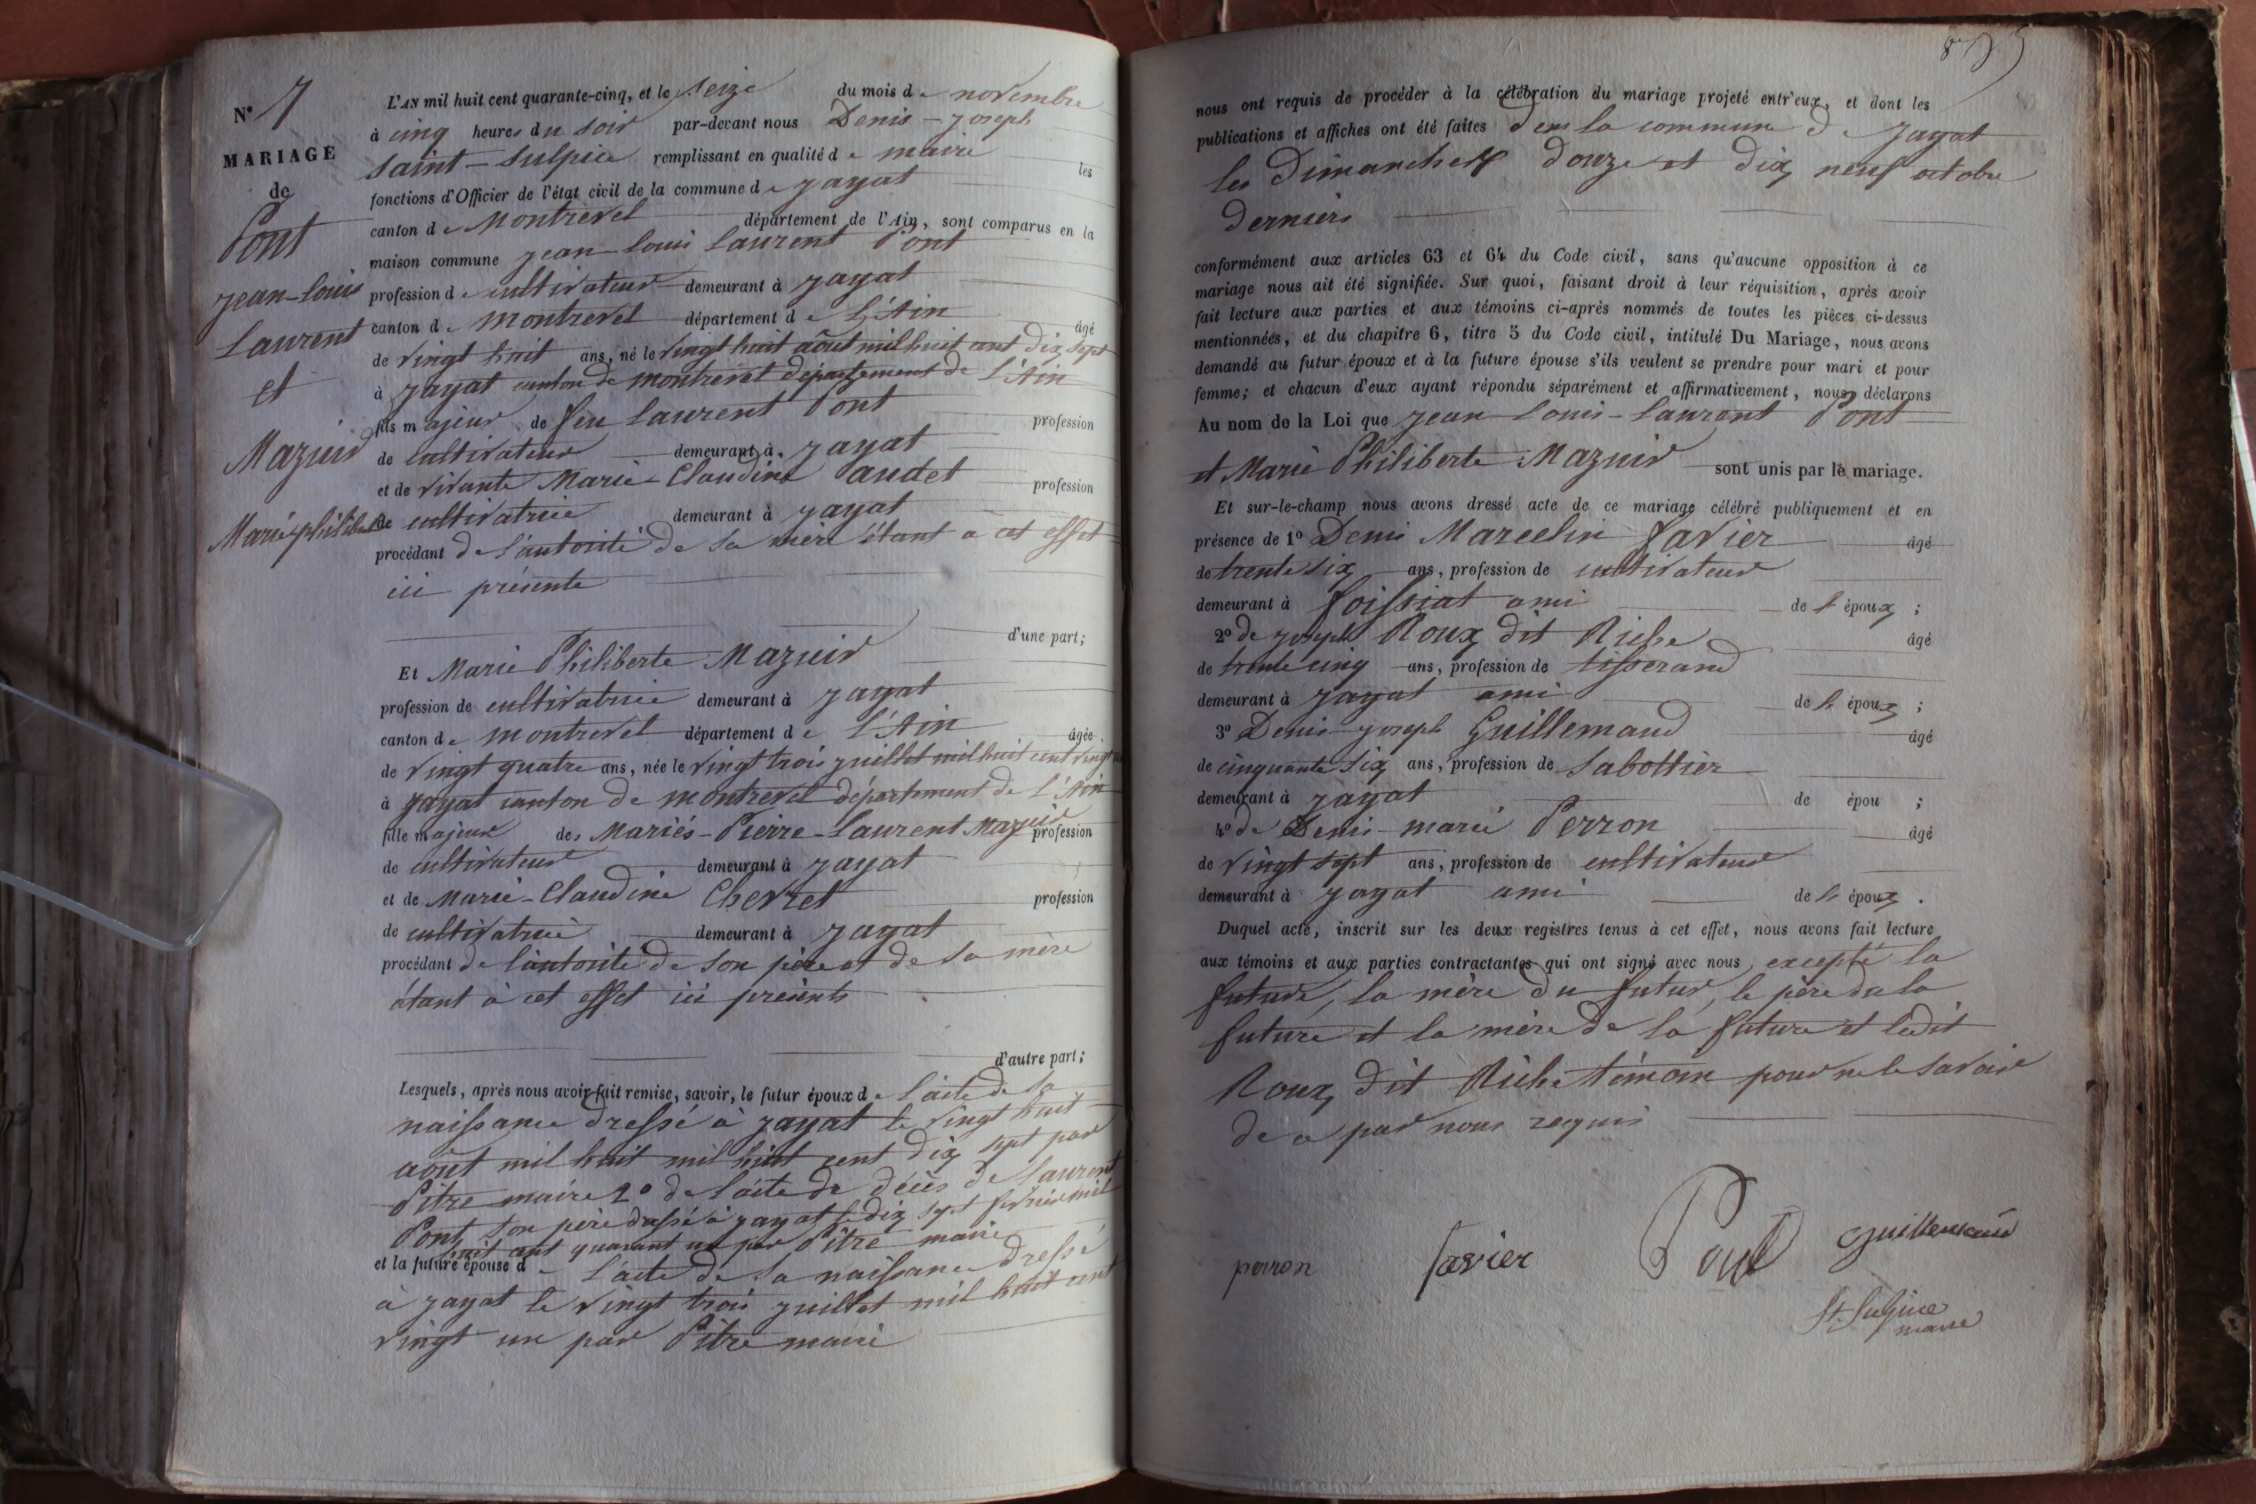 N° 7
MARIAGE
de
Pont
jean-louis
Laurent
et
Mazuir
Marie philiberte
L'AN mil huit cent quarante-cinq, et le seize du mois de novembre
à cinq heures du soir par-devant nous Denis-joseph
saint-Sulpice remplissant en qualité de maire les
fonctions d'Officier de l'état civil de la commune de jayat
canton de Montrevel département de l'Ain, sont comparus en la
maison commune jean louis laurent Pont
profession de cultivateur demeurant à jayat
canton de montrevel département de L'Ain âgé
de vingt huit ans, né le vingt huit août mil huit cent dix sept
à jayat canton de montrevel département de L'Ain
fils majeur de feu laurent Pont profession
de cultivateur demeurant à jayat
et de vivante Marie-Claudine Paudet profession
de cultivatrice demeurant à jayat
procédant de l'autorité de sa mère étant à cet effet
ici présente
d'une part;
Et Marie Philiberte Mazuir
profession de cultivatrice demeurant à jayat
canton de montrevel département de L'Ain âgée
de vingt quatre ans, née le vingt trois juillet mil huit cent vingt un
à jayat canton de montrevel département de L'Ain
fille majeur des Mariés-Pierre-Laurent Mazuir profession
de cultivateur demeurant à jayat
et de Marie-Claudine Chevret profession
de cultivatrice demeurant à jayat
procédant de l'autorité de son père et de sa mère
étant à cet effet ici présents
d'autre part;
Lesquels, après nous avoir fait remise, savoir, le futur époux de l'acte de sa
naissance dressé à jayat le vingt huit
août mil huit mil huit cent dix sept par
Pitre maire 2° de l'acte de décès de laurent
Pont son père dressé à jayat le dix sept février mil
huit cent quarant un par Pitre maire
et la future épouse de l'acte de sa naissance dressé
à jayat le vingt trois juillet mil huit cent
vingt un par Pitre maire
nous ont requis de procéder à la célébration du mariage projeté entr'eux, et dont les
publications et affiches ont été faites dans la commune de jayat
les Dimanches douze et dix neuf octobre
derniers
conformément aux articles 63 et 64 du Code civil, sans qu'aucune opposition à ce
mariage nous ait été signifiée. Sur quoi, faisant droit à leur réquisition, après avoir
fait lecture aux parties et aux témoins ci-après nommés de toutes les pièces ci-dessus
mentionnées, et du chapitre 6, titre 5 du Code civil, intitulé Du Mariage, nous avons
demandé au futur époux et à la future épouse s'ils veulent se prendre pour mari et pour
femme; et chacun d'eux ayant répondu séparément et affirmativement, nous déclarons
Au nom de la Loi que jean louis-laurent Pont
et Marie Philiberte Mazuir sont unis par le mariage.
Et sur-le-champ nous avons dressé acte de ce mariage célébré publiquement et en
présence de 1° Denis Marcelin favier âgé
de trente six ans, profession de cultivateur
demeurant à foissiat ami de l'époux ;
2° de joseph Roux dit Riche âgé
de trente cinq ans, profession de tisserand
demeurant à jayat ami de l'époux ;
3° Denis joseph Guillemaud âgé
de cinquante six ans, profession de sabottier
demeurant à jayat de épou ;
4° de Denis-marie Perron âgé
de vingt sept ans, profession de cultivateur
demeurant à jayat ami de l'époux .
Duquel acte, inscrit sur les deux registres tenus à cet effet, nous avons fait lecture
aux témoins et aux parties contractantes qui ont signé avec nous, excepté la
future, la mère du futur, le père de la
future et la mère de la future et ledit
Roux, dit Riche témoin pour ne le savoir
de a par nous requis
perron favier Pont Guillemaud
St. Sulpice
maire